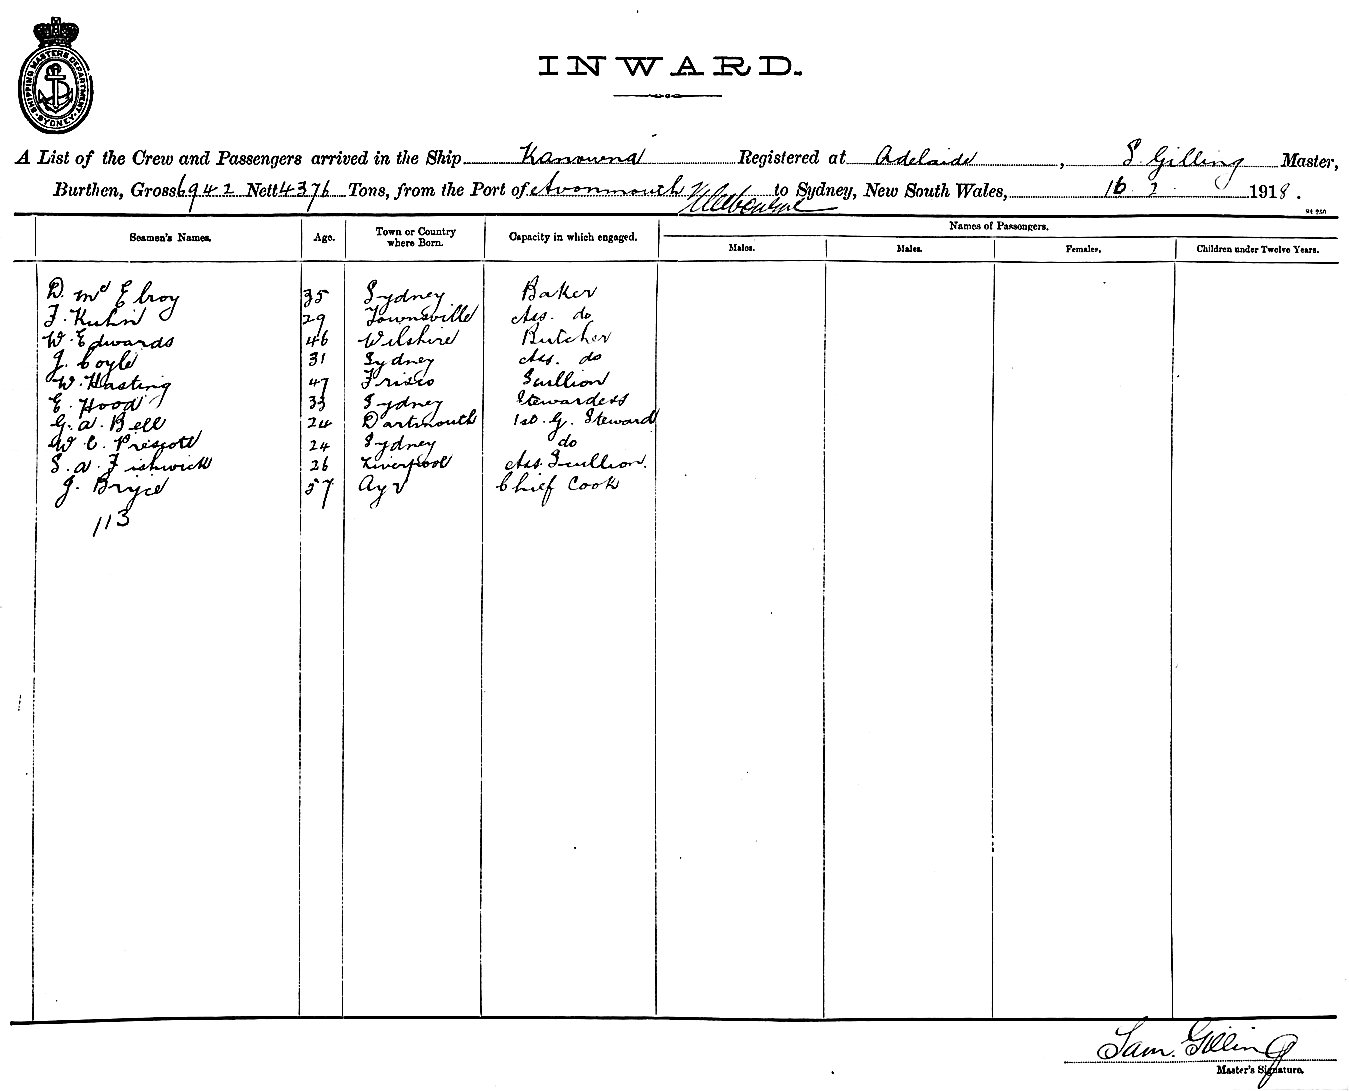 SHIPPING MASTERS DEPARTMENT SYDNEY
INWARD.
A List of the Crew and Passengers arrived in the Ship Kanowna Registered at Adelaide, S. Gilling Master,
Burthen, Gross 6942 Nett 4376 Tons, from the Port of Avonmouth Melbourne to Sydney, New South Wales, 16 2 1918.
Seamen's Names. Age. Town or Country where Born. Capacity in which engaged. Names of Passengers.
Males. Males. Females. Children under Twelve Years.
D. McElroy 35 Sydney Baker
F. Kuhn 29 Townsville Ass. do
W. Edwards 46 Wilshire Butcher
J. Coyle 31 Sydney Ass. do
W. Hasting 47 Frisco Scullion
E. Hood 33 Sydney Stewardess
G. A. Bell 24 Dartmouth 1st G. Steward
W. C. Prescott 24 Sydney do
S. A. Fishwick 26 Liverpool Ass. Scullion.
J. Bryce 57 Ayr Chief Cook
113
Sam. Gilling
Master's Signature.